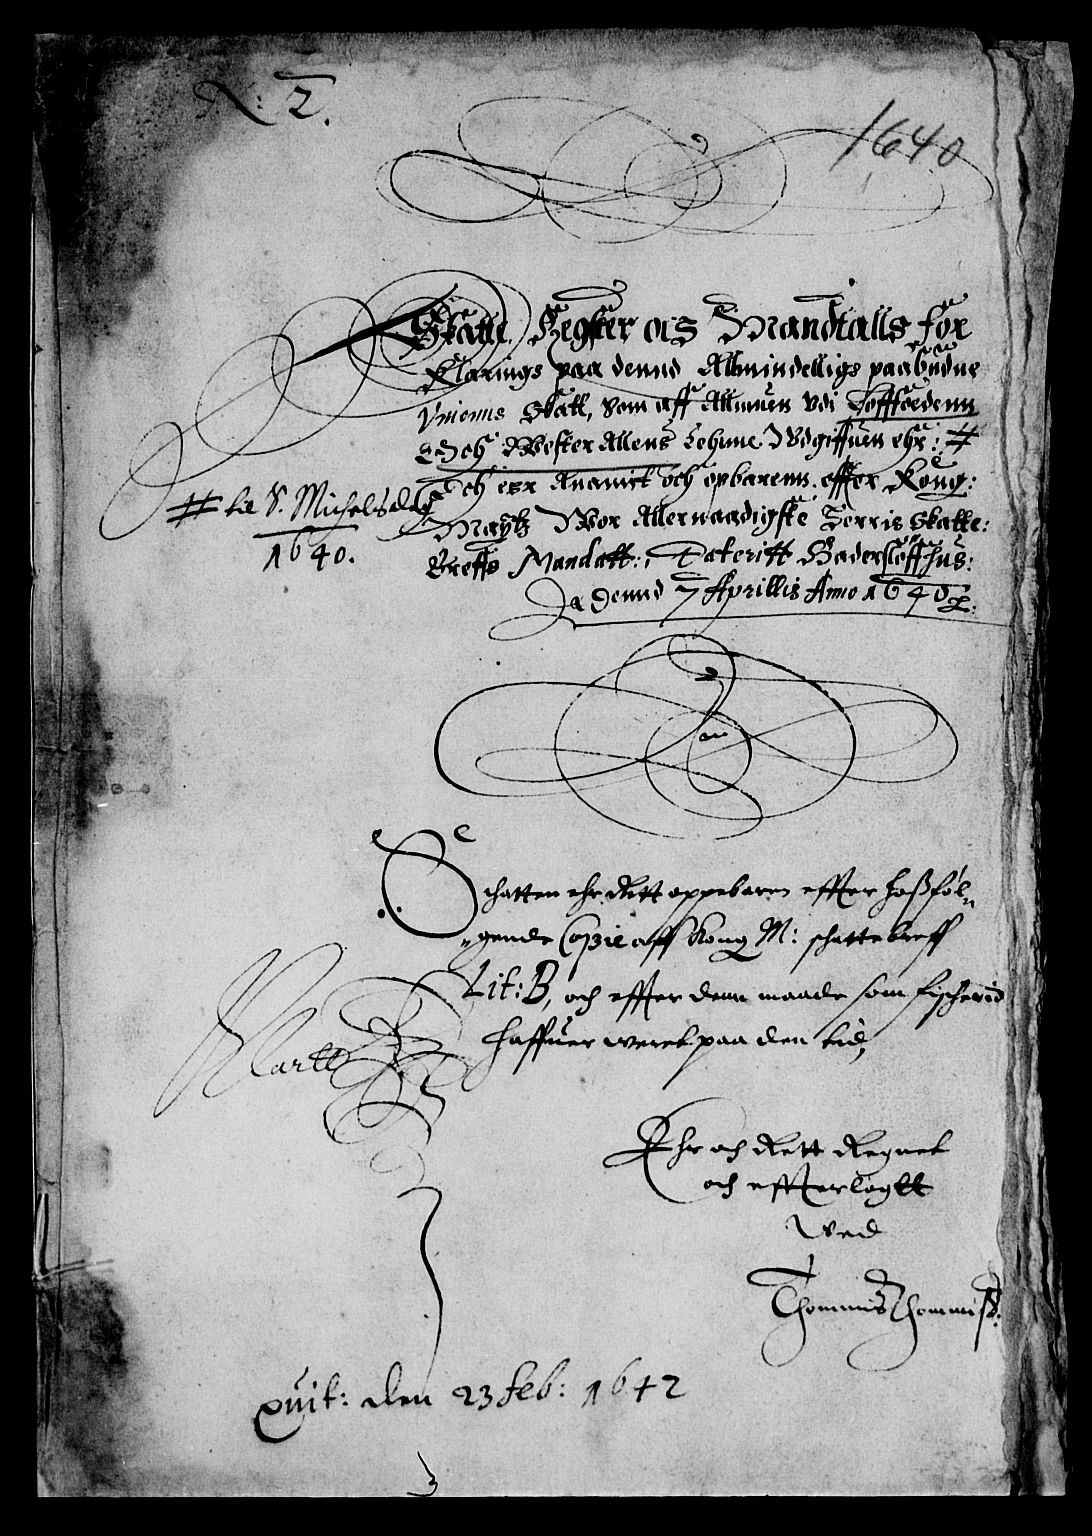 N: 2.
1640
Skatte Regster och Mandtalls for
Klarings paa dennd Allmindelligs paabudne
Vnions Skatt, som aff Allmuen vdi Loffoedenn
Och Wester Allens Lehnne Vdgiffuen ehr: #
Och err Anamit och opbarenn effter Kong:
Maytz Wor Allernaadigste Herris Skatte:
Breffs Mandatt: Dateritt Haderslöffhus:
dennd 7 Aprillis Anno 1640
# til S. Michelsdag
1640.
Schatten ehr Rett oppebaren effter hoßföl-
gende Copie aff Kong M: schattebreff
Lit: B, och effter denn maade som fischerid
haffuer weret paa den tid,
Ehr och Rett Regnet
och effterlagtt
Wed
Thommis Thommiß:
quit: den 23 feb: 1642